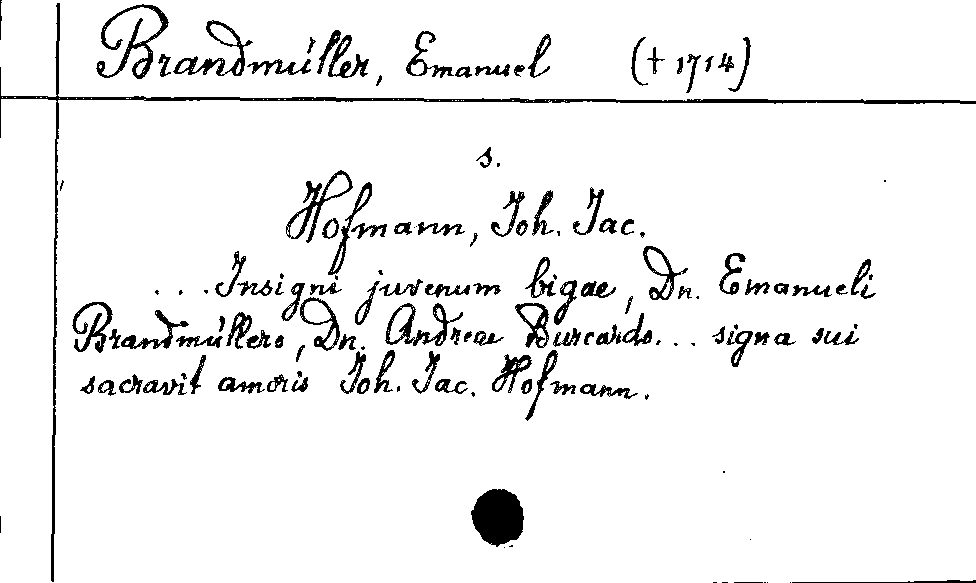 Brandmüller, Emanuel († 1714)
s.
Hofmann, Joh. Jac.
...Insigni juvenum bigae, Dn. Emanueli
Brandmüllero, Dn. Andreae Burcardo... signa sui
sacravit amoris Joh. Jac. Hofmann.